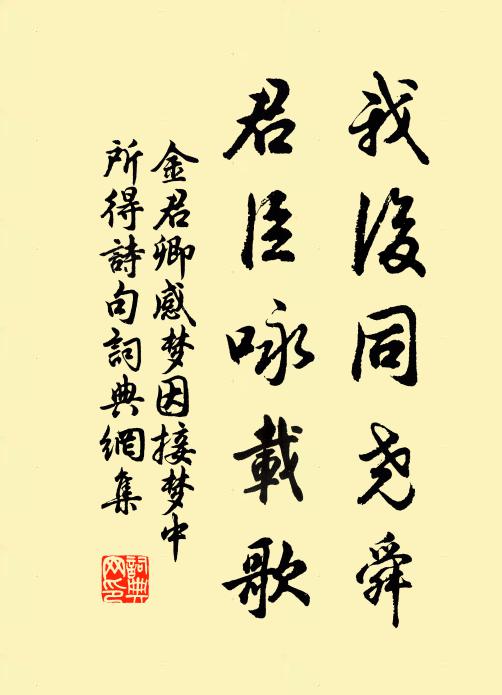 我後同堯舜
君臣咏載歌
金君卿感梦因接梦中
所得詩句詞典網集
詞典
网印